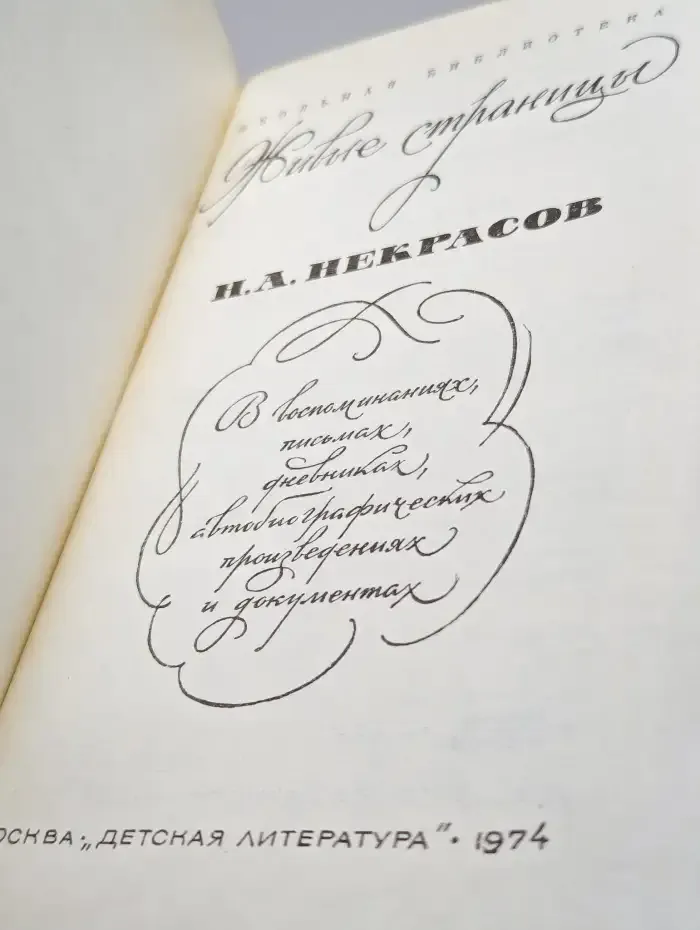 ШКОЛЬНАЯ БИБЛИОТЕКА
Живые страницы
Н.А.НЕКРАСОВ
В воспоминаниях,
письмах,
дневниках,
автобиографических
произведениях
и документах
ОСКВА·„ДЕТСКАЯ ЛИТЕРАТУРА"· 1974